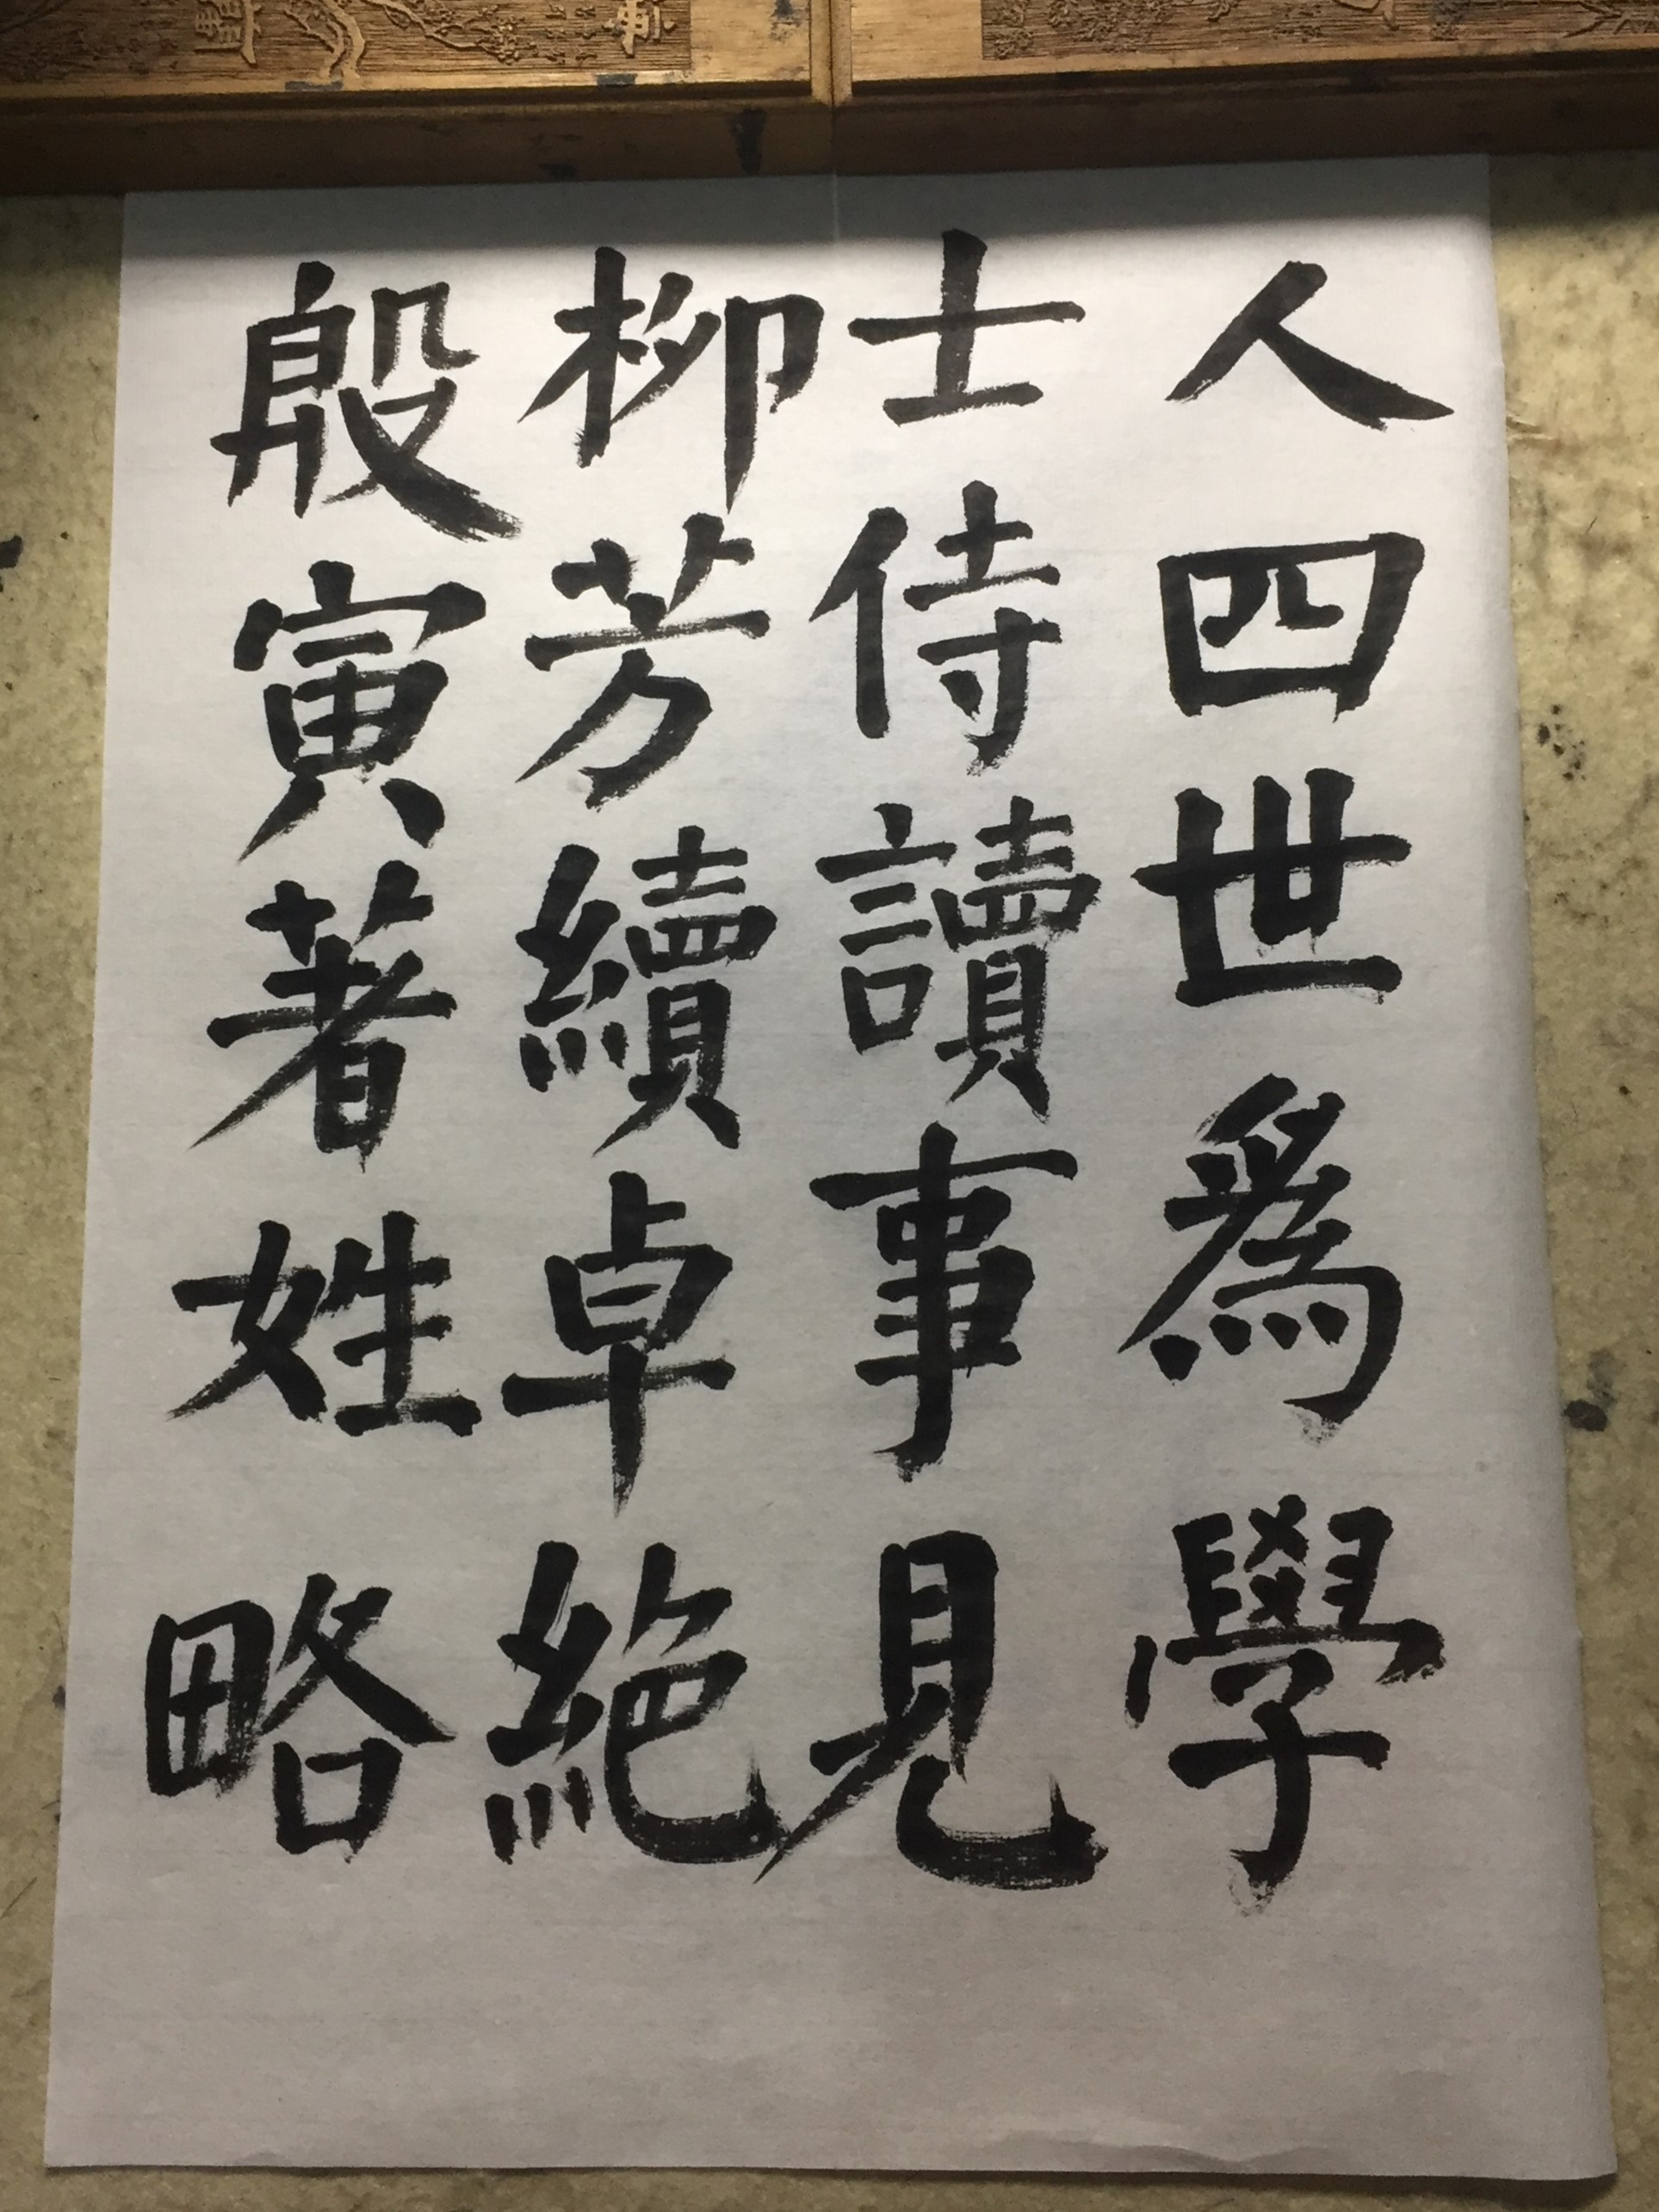 人四世爲學
士侍讀事見
柳芳續卓絕
殷寅著姓略